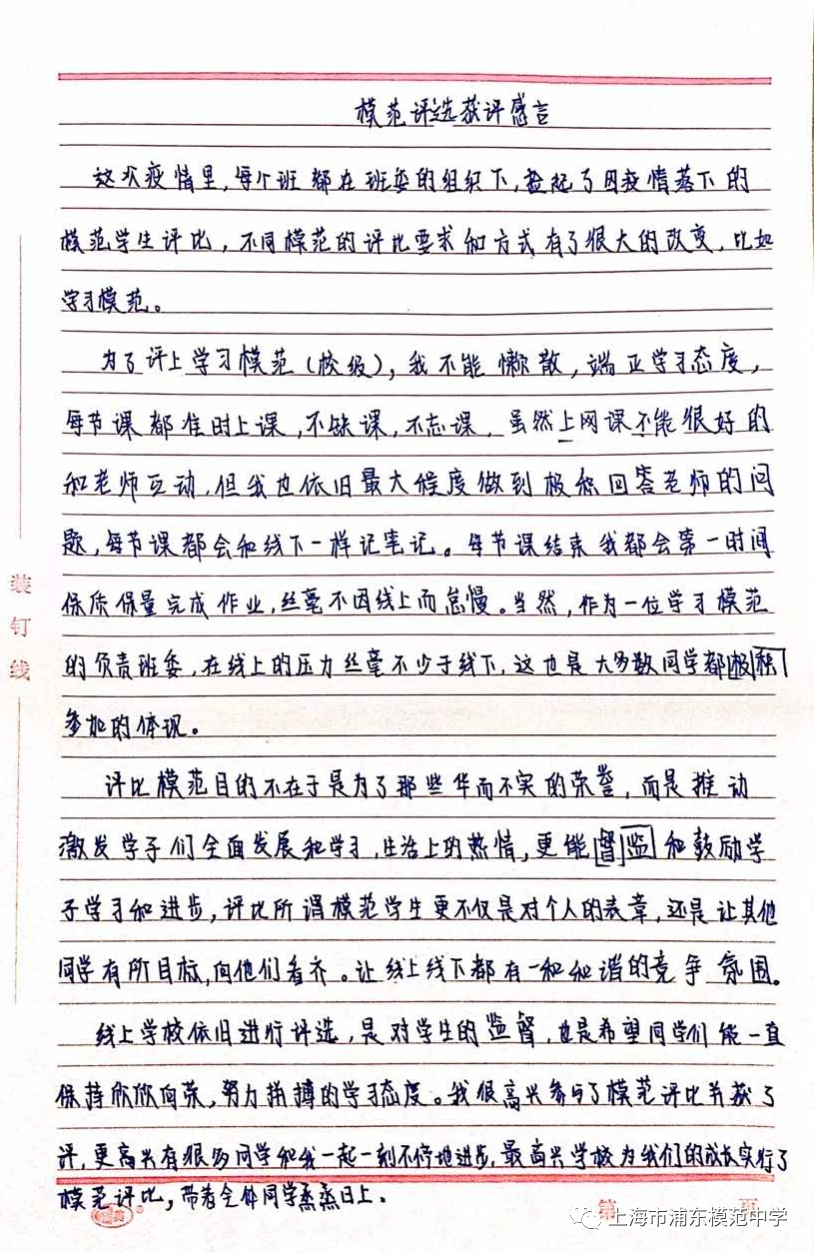 模范评选获评感言
这次疫情里,每个班都在班委的组织下,捡起了因疫情落下的
模范学生评比,不同模范的评比要求和方式有了很大的改变,比如
学习模范。
为了评上学习模范(校级),我不能懒散,端正学习态度,
每节课都准时上课,不缺课,不忘课,虽然上网课不能很好的
和老师互动,但我也依旧最大程度做到极积回答老师的问
题,每节课都会和线下一样记笔记。每节课结束我都会第一时间
保质保量完成作业,丝毫不因线上而怠慢。当然,作为一位学习模范
的负责班委,在线上的压力丝毫不少于线下,这也是大多数同学都极积
参加的体现。
评比模范目的不在于是为了那些华而不实的荣誉,而是推动
激发学子们全面发展和学习,生活上的热情,更能督监和鼓励学
子学习和进步,评比所谓模范学生更不仅是对个人的表章,还是让其他
同学有所目标,向他们看齐。让线上线下都有一种和谐的竞争氛围。
线上学校依旧进行评选,是对学生的监督,也是希望同学们能一直
保持欣欣向荣,努力拼搏的学习态度。我很高兴参与了模范评比并获了
评,更高兴有很多同学和我一起一刻不停地进步,最高兴学校为我们的成长实行了
模范评比,带着全体同学蒸蒸日上。
装
钉
线
第 页
上海市浦东模范中学